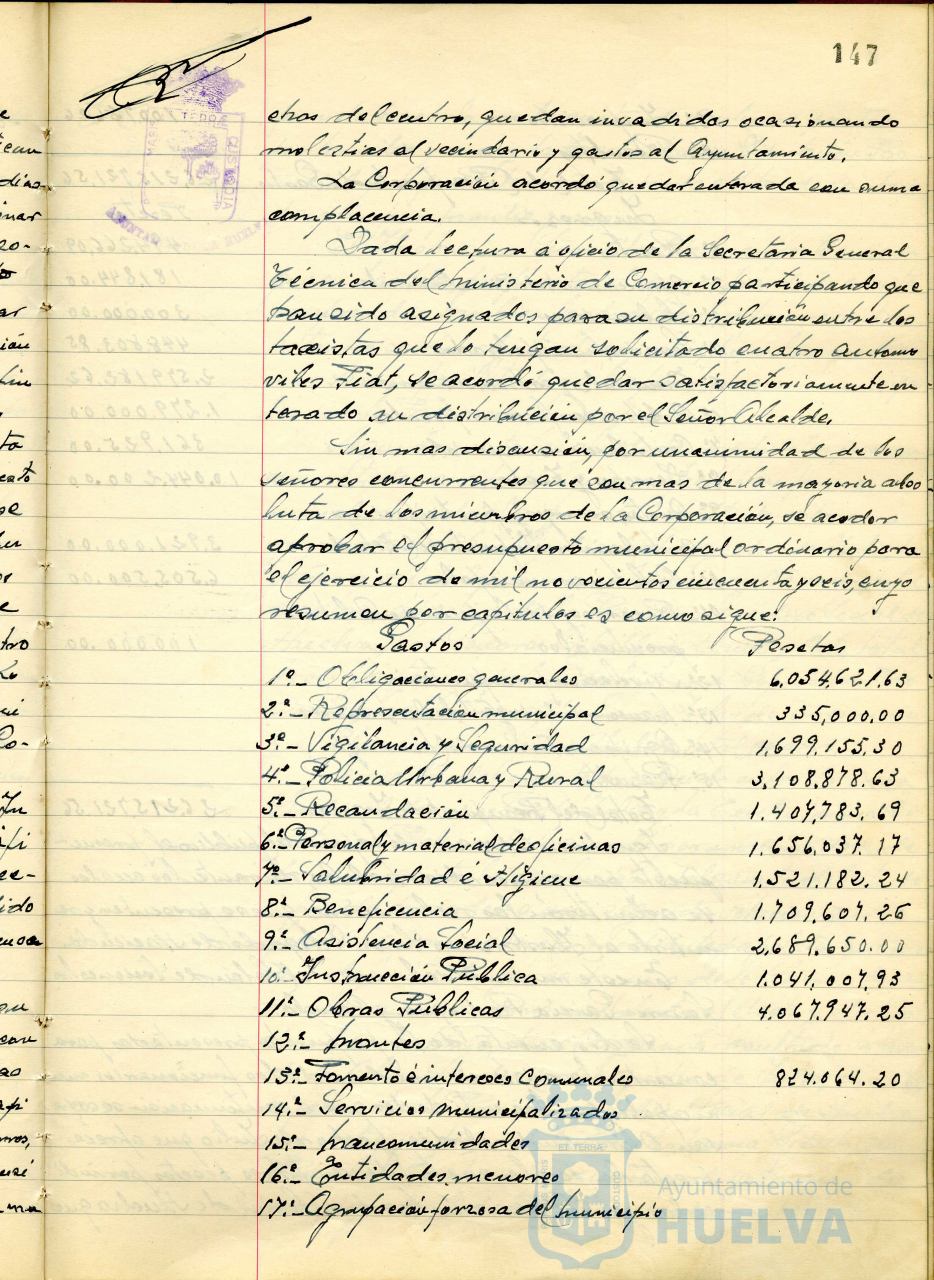 147
etros del centro, quedan invadidos ocasionando
molestias al vecindario y gastos al Ayuntamiento.
La Corporación acordó quedar enterada con suma
complacencia.
Dada lectura á oficio de la Secretaria General
Técnica del Ministerio de Comercio participando que
han sido asignados para su distribución entre los
taxistas que lo tengan solicitado cuatro automo
viles Fiat, se acordó quedar satisfactoriamente en
terado su distribución por el Señor Alcalde.
Sin mas discusión, por unanimidad de los
señores concurrentes que son mas de la mayoria abso
luta de los miembros de la Corporación, se acordor
aprobar el presupuesto municipal ordinario para
el ejercicio de mil novecientos cincuenta y seis, cuyo
resumen por capitulos es como sigue:
Gastos Pesetas
1º.- Obligaciones generales 6.054.621.63
2º.- Representación municipal 335,000.00
3º.- Vigilancia y Seguridad 1.699.155.30
4º.- Policia Urbana y Rural 3.108.878.63
5º.- Recaudación 1.407.783.69
6º.- Personal y material de oficinas 1.656.037.17
7º.- Salubridad é Higiene 1.521.182.24
8º.- Beneficencia 1.709.607.26
9º.- Asistencia Social 2.689.650.00
10º.- Instrucción Pública 1.041.007.93
11º.- Obras Públicas 4.067.947.25
12º.- Montes
13º.- Fomento é intereses Comunales 824.064.20
14º.- Servicios municipalizados
15º.- Mancomunidades
16º.- Entidades menores
17º.- Agrupación forzosa del Municipio
Ayuntamiento de
HUELVA